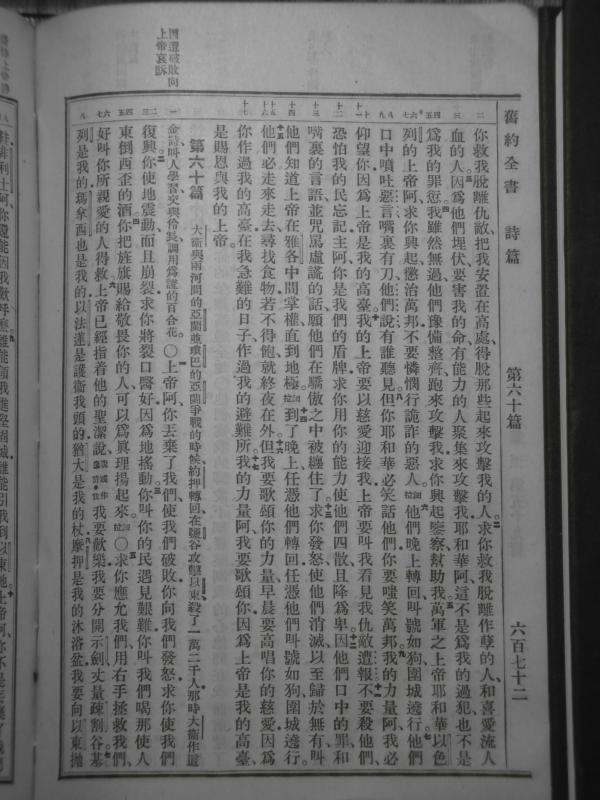 舊約全書　詩篇　第六十篇　六百七十二
你救我脫離仇敵把我安置在高處得脫那些起來攻擊我的人求你救我脫離作孽的人和喜愛流人
血的人因爲他們埋伏要害我的命有能力的人聚集來攻擊我耶和華阿這不是爲我的過犯也不是
爲我的罪愆我雖然無過他們豫備整齊跑來攻擊我求你興起鑒察幫助我萬軍之上帝耶和華以色
列的上帝阿求你興起懲治萬邦不要憐憫行詭詐的惡人細拉他們晚上轉回叫號如狗圍城遶行他們
口中噴吐惡言嘴裏有刀他們說有誰聽見但你耶和華必笑話他們你要嗤笑萬邦我的力量阿我必
仰望你因爲上帝是我的高臺我的上帝要以慈愛迎接我上帝要叫我看見我仇敵遭報不要殺他們
恐怕我的民忘記主阿你是我們的盾牌求你用你的能力使他們四散且降爲卑因他們口中的罪和
嘴裏的言語並咒罵虛謊的話願他們在驕傲之中被纏住了求你發怒使他們消滅以至歸於無有叫
他們知道上帝在雅各中間掌權直到地極細拉到了晚上任憑他們轉回任憑他們叫號如狗圍城遶行
他們必走來走去尋找食物若不得飽就終夜在外但我要歌頌你的力量早晨要高唱你的慈愛因爲
你作過我的高臺在我急難的日子作過我的避難所我的力量阿我要歌頌你因爲上帝是我的高臺
是賜恩與我的上帝
第六十篇　大衛與兩河間的亞蘭並瑣巴的亞蘭爭戰的時候約押轉回在鹽谷攻擊以東殺了一萬二千人那時大衛作這
金詩叫人學習交與伶長調用爲證的百合花〇上帝阿你丟棄了我們使我們破敗你向我們發怒求你使我們
復興你使地震動而且崩裂求你將裂口醫好因爲地搖動你叫你的民遇見艱難你叫我們喝那使人
東倒西歪的酒你把旌旗賜給敬畏你的人可以爲眞理揚起來細拉〇求你應允我們用右手拯救我們
好叫你所親愛的人得救上帝已經指着他的聖潔說說或作應許我我要歡樂我要分開示劍丈量疎割谷基
列是我的瑪拿西也是我的以法蓮是護衛我頭的猶大是我的杖摩押是我的沐浴盆我要向以東拋